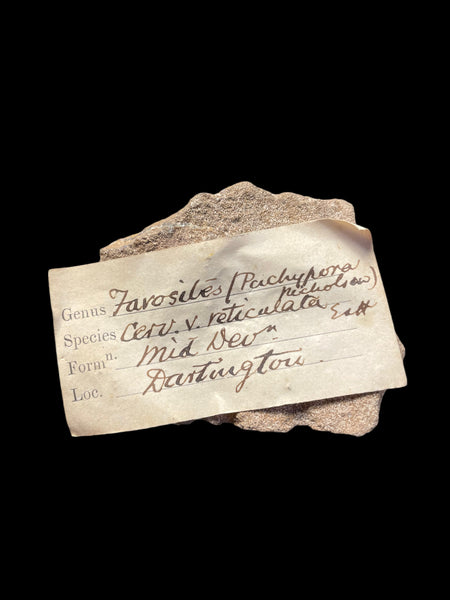 Genus Favosites (Pachypora
nicholson)
Species Cerv. v. reticulata
Formn. Mid Devn
Loc. Dartington